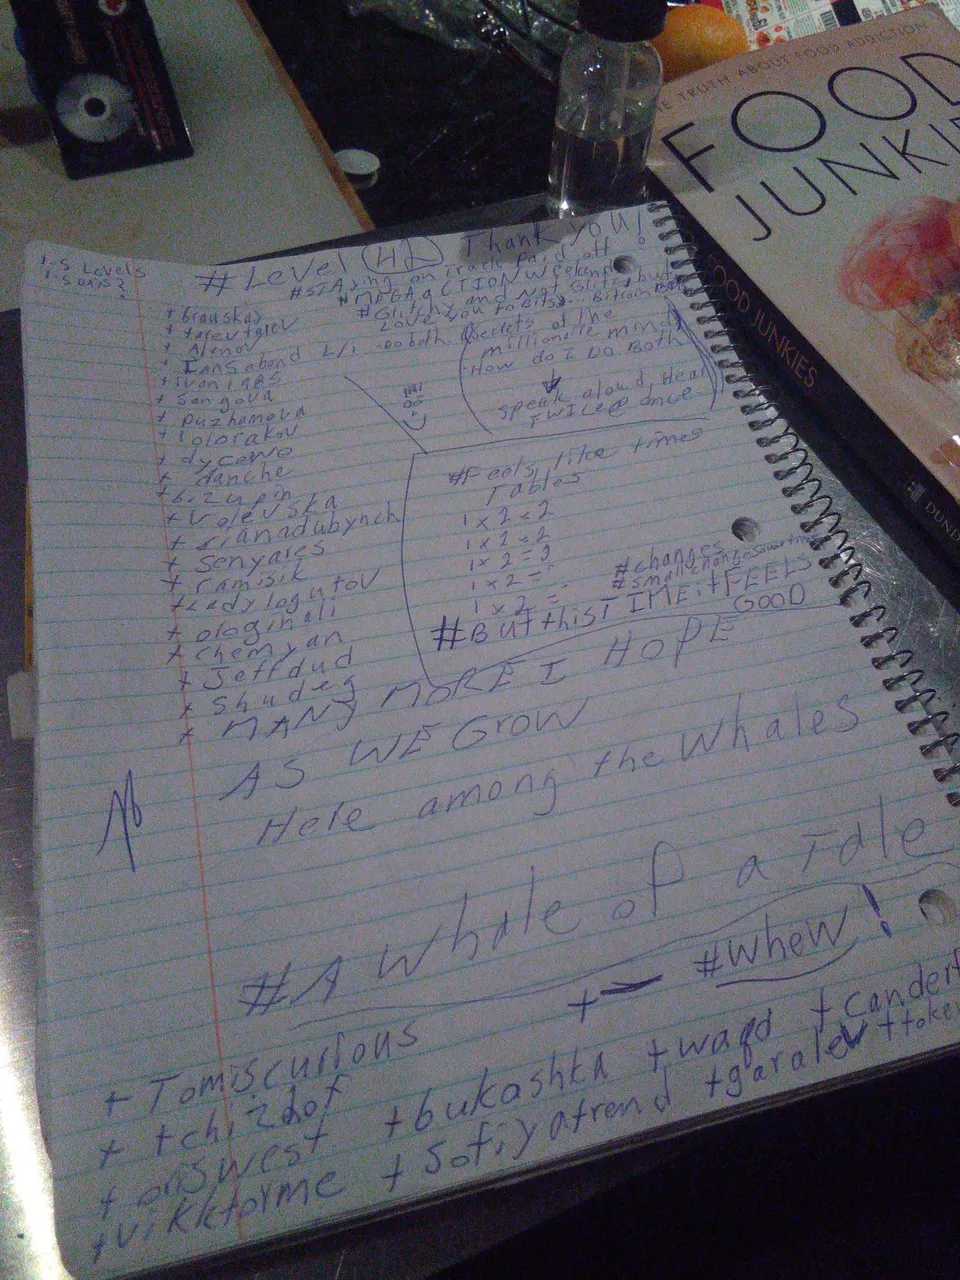 THE TRUTH ABOUT FOOD ADDICTION
FOOD
JUNKIE
FOOD JUNKIES
DUND
1-5 Levels
1-5 DAYS?
#Level 42 Thank you!
#STAying on track paid off
#MEGAACTIONWeekend
#Glitchy and Not Glitsy but
Love you to Bits...
+ tarevtglev
+ Alenov
+ Iansabond
+ ivan1985
+ Sangova
+ puzhamova
+ lolorakov
+ dycewo
+ danche
+ bizupin
+ Volevska
+ rianadubynch
+ Senyales
+ ramisik
+ Ladylogutov
+ ologinali
+ Chemyan
+ Jeffdud
+ Shudeg
+ MANY MORE I HOPE
AS WE GROW
Here among the whales
Do both. Secrets of the
millionaire mind
How do I Do Both
speak aloud, Hear
TWICE@once
#Feels like times
Tables
1 x 2 = 2
1 x 2 = 2
1 x 2 = 2
1 x 2 =
1 x 2 =
#changes
#smallchanges
#ButthisTIMEitFEELS
GOOD
#A Whale of a Tale
+ — #whew!
+ Tomiscurious
+ tchizhof + bukashka + waqd + cander
+ onswest + Sofiyatrend + garalev + toke
+ vikktorme